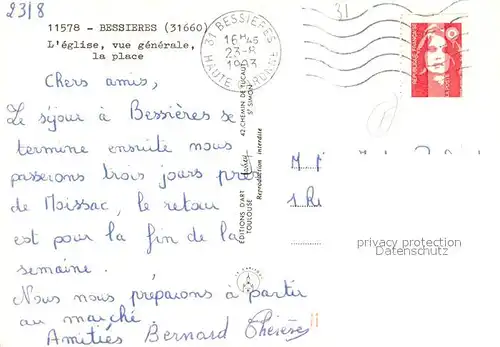 23/8
31
11578 - BESSIERES (31660)
L'église, vue générale,
la place
31 BESSIERES
16H45
23-8
1993
HAUTE GARONNE
Chers amis,
Le séjour à Bessières se
termine ensuite nous
passerons trois jours près
de Moissac, le retour
est pour la fin de la
semaine.
Nous nous préparons à partir
au marché.
Amitiés Bernard Thérèse
EDITIONS D'ART
TOULOUSE
Reproduction interdite
42, CHEMIN DE TUCAUT
ST SIMON
M
1 R
privacy protection
Datenschutz